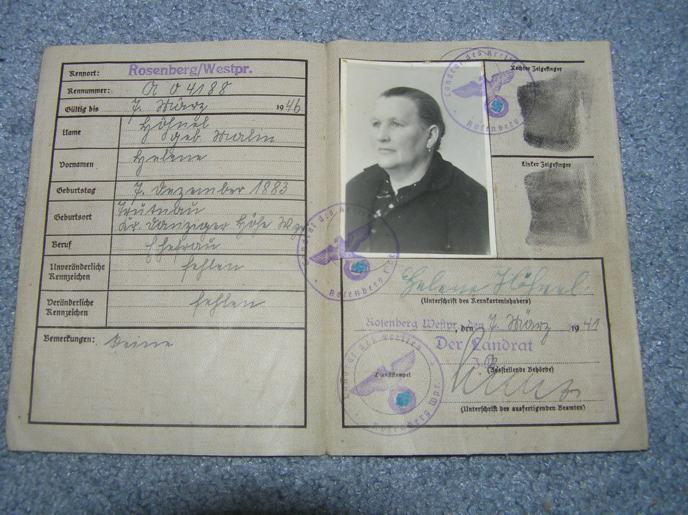 Kennort: Rosenberg/Westpr.
Kennummer: A 04188
Gültig bis 7. März 1946
Name Höhnel
geb. Malin
Vornamen Helene
Geburtstag 7. Dezember 1883
Geburtsort Trutnau
Kr. Danziger Höhe Wpr.
Beruf Ehefrau
Unveränderliche Kennzeichen fehlen
Veränderliche Kennzeichen fehlen
Bemerkungen: Keine
Rechter Zeigefinger
Linker Zeigefinger
Helene Höhnel.
(Unterschrift des Kennkarteninhabers)
Rosenberg Westpr., den 7. März 1941
Der Landrat
Dienststempel
(Ausstellende Behörde)
(Unterschrift des ausfertigenden Beamten)